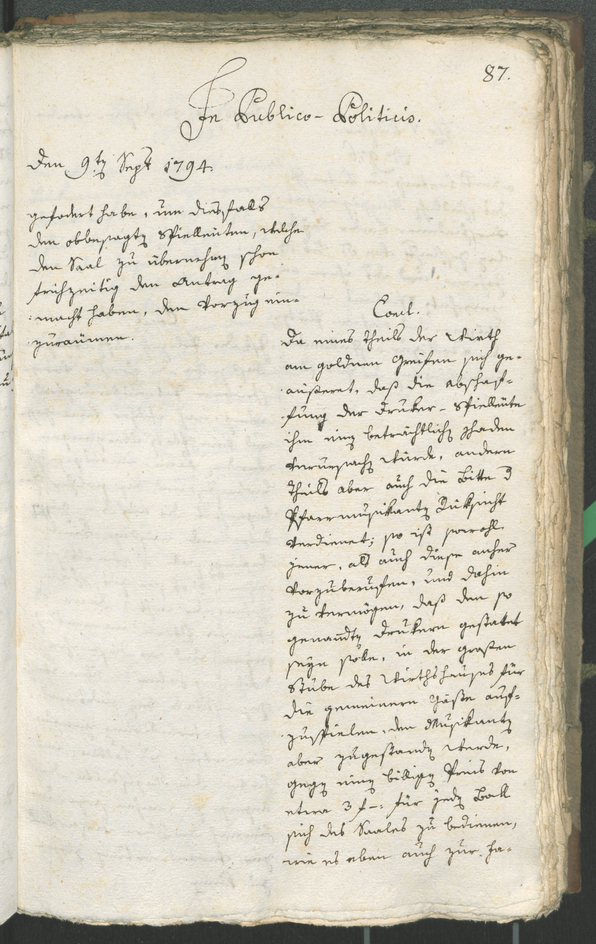 87.
In Publico-Politicis.
den 9ten Sept 1794.
gefodert habe, um diesfalls
den obbesagten Spielleuten, welche
den Saal zu übernehmen schon
frühzeitig den Antrag ge-
macht haben, den Vorzug ein-
zuräumen.
Concl.
Da eines theils der Wirth
am goldnen Greifen sich ge-
äußeret, daß die abschaf-
fung der Druker-Spielleute
ihm einen beträchtlichen Schaden
verursachen würde, andern
theils aber auch die Bitte der
Pfarrmusikanten Rüksicht
verdienet; so ist sowohl
jener, als auch diese anher
vorzuberufen, und dahin
zu vermögen, daß den so
genannten Drukern gestattet
seyn solle, in der großen
Stube des Wirthshauses für
die gemeinern Gäste auf-
zuspielen, den Musikanten
aber zugestanden werde,
gegen einen billigen Preis von
etwa 3 f –: für jeden Ball
sich des Saales zu bedienen,
wie es eben auch zur Fa-